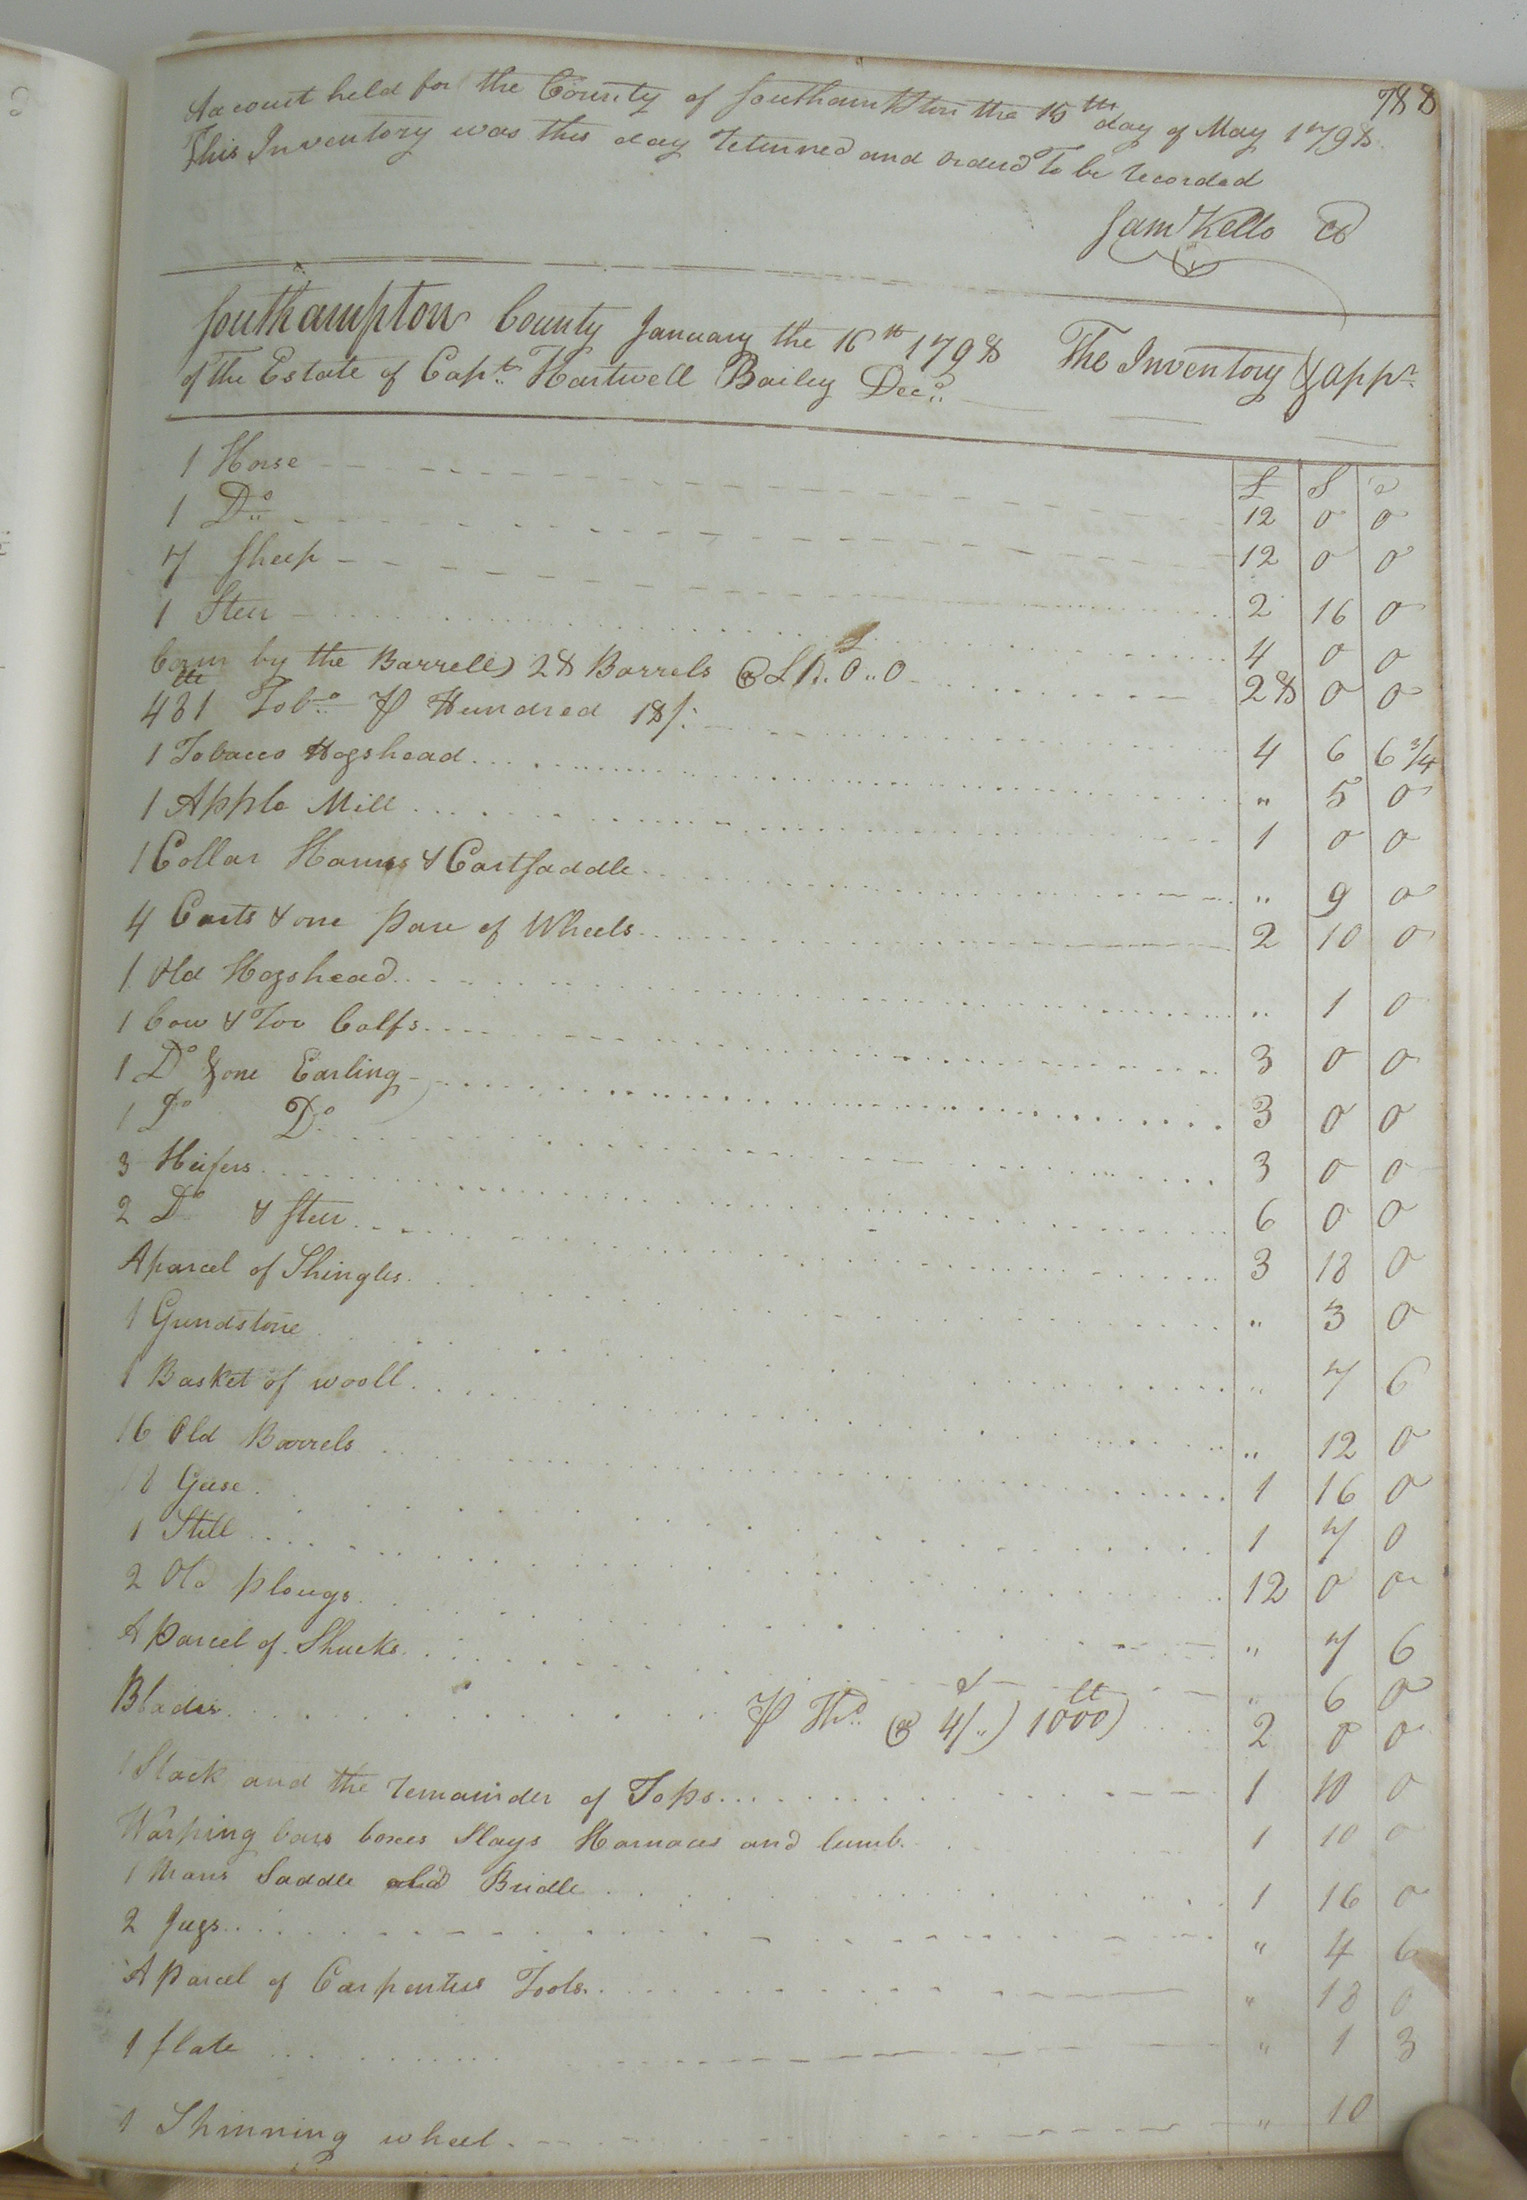 788
At a court held for the County of Southampton the 15th day of May 1798
This Inventory was this day returned and orderd To be recorded
Saml Kello CC
Southampton County January the 16th 1798 The Inventory & appr
of the Estate of Capt. Hartwell Bailey Decd.
£ S d
1 Horse 12 0 0
1 Do. 12 0 0
7 Sheep 2 16 0
1 Steer 4 0 0
Corn by the Barrell 28 Barrels @ £1..0..0 28 0 0
481 lb Tobo. P Hundred 18/. 4 6 6 3/4
1 Tobacco Hogshead " 5 0
1 Apple Mill 1 0 0
1 Collar Hames & Cartsaddle " 9 0
4 Carts & one pare of Wheels 2 10 0
1 Old Hogshead " 1 0
1 Cow & Too Calfs 3 0 0
1 Do & one Earling 3 0 0
1 Do Do 3 0 0
3 Heifers 6 0 0
2 Do & Steer 3 18 0
A parcel of Shingles " 3 0
1 Grindstone " 7 6
1 Basket of wooll " 12 0
16 Old Barrels 1 16 0
Geese 1 7 0
1 Still 12 0 0
2 Old plougs " 7 6
A parcel of Shucks " 6 0
Blades P Hd. @ 4/..) 1000 lt) 2 0 0
1 Stack and the remainder of Tops 1 10 0
Warping bars boxes Slays Harnaces and lumb. 1 10 0
1 Mans Saddle and Bridle 1 16 0
2 Jugs " 4 6
A Parcel of Carpenters Tools " 18 0
1 slate " 1 3
1 Shinning wheel " 10